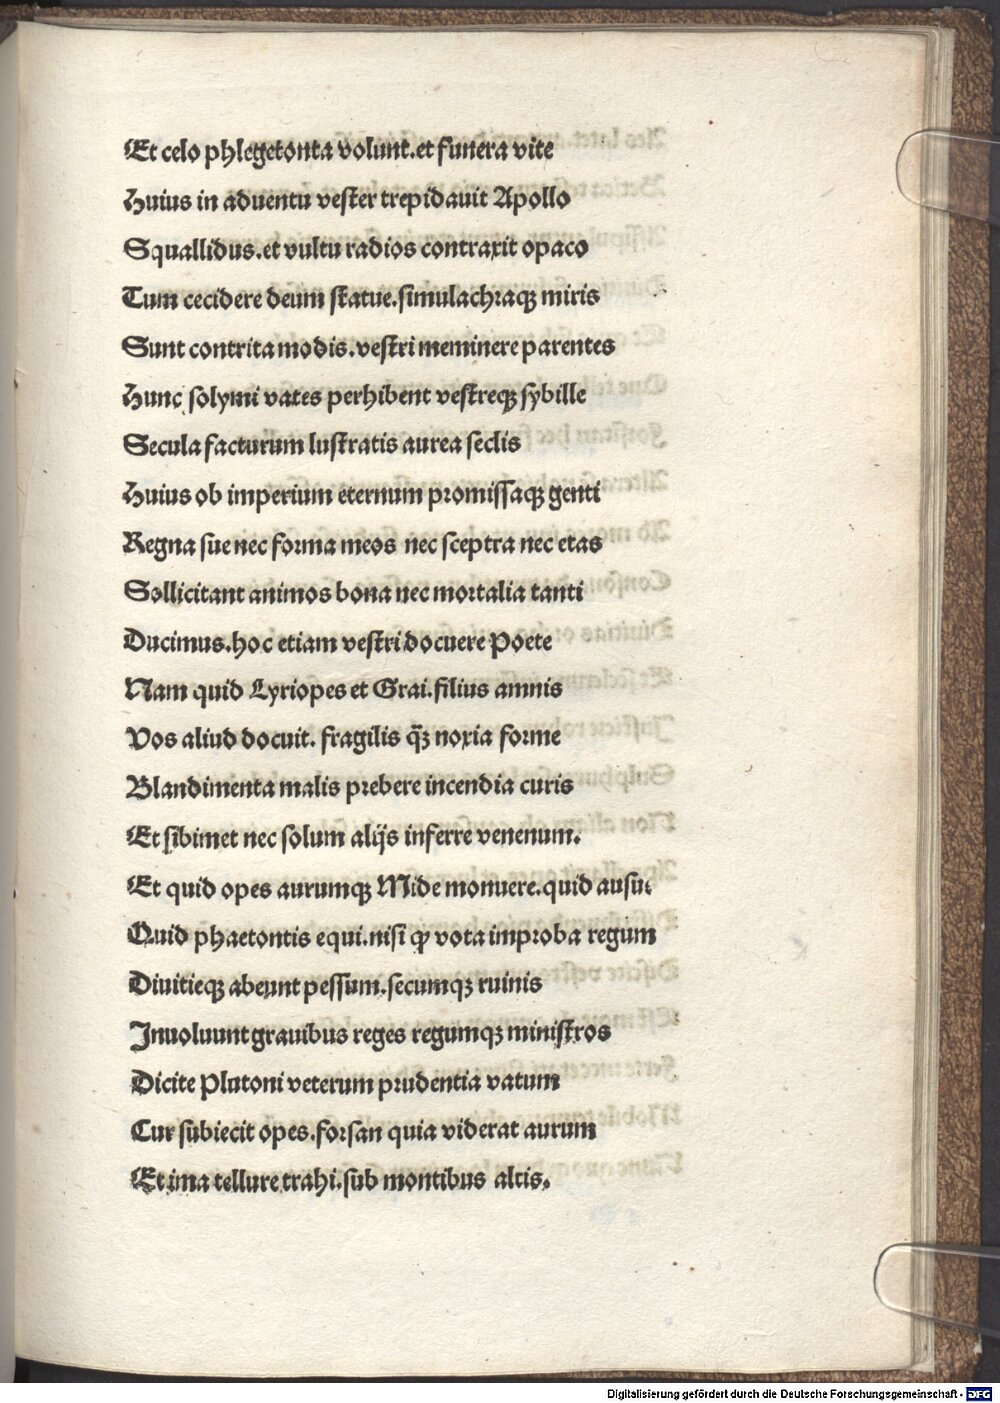 Et celo phlegetonta volunt.et funera vite
Huius in aduentu vester trepidauit Apollo
Squallidus.et vultu radios contraxit opaco
Tum cecidere deum statue.simulachraqꝫ miris
Sunt contrita modis.vestri meminere parentes
Hunc solymi vates perhibent vestreqꝫ sybille
Secula facturum lustratis aurea seclis
Huius ob imperium eternum promissaqꝫ genti
Regna sue nec forma meos nec sceptra nec etas
Sollicitant animos bona nec mortalia tanti
Ducimus.hoc etiam vestri docuere Poete
Nam quid Lyriopes et Grai.filius amnis
Vos aliud docuit. fragilis q̃ꝫ noxia forme
Blandimenta malis prebere incendia curis
Et sibimet nec solum alijs inferre venenum.
Et quid opes aurumqꝫ Mide monuere.quid ausus
Quid phaetontis equi.nisi ꝙ vota improba regum
Diuitieqꝫ abeunt pessum.secumqꝫ ruinis
Inuoluunt grauibus reges regumqꝫ ministros
Dicite Plutoni veterum prudentia vatum
Cur subiecit opes.forsan quia viderat aurum
Et ima tellure trahi.sub montibus altis.
Digitalisierung gefördert durch die Deutsche Forschungsgemeinschaft - DFG